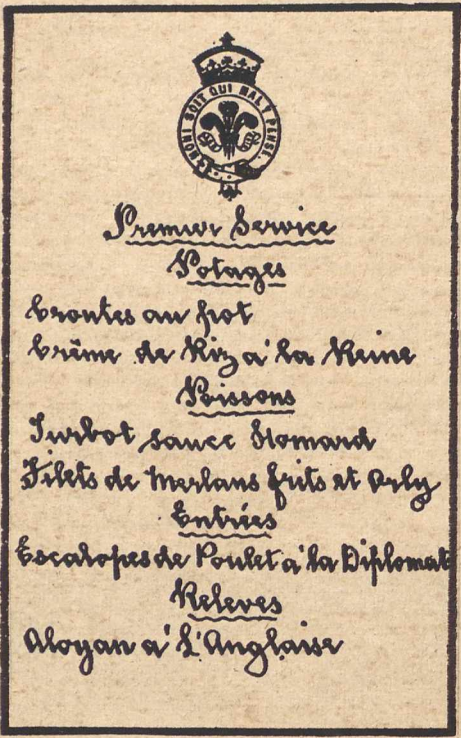 HONI SOIT QUI MAL Y PENSE
Premier Service
Potages
Croutes au pot
Crême de Riz a' la Reine
Poissons
Turbot sauce Homard
Filets de Merlans frits et Orly
Entrées
Escalopes de Poulet a' la Diplomat
Releves
Aloyau a' L'Anglaise